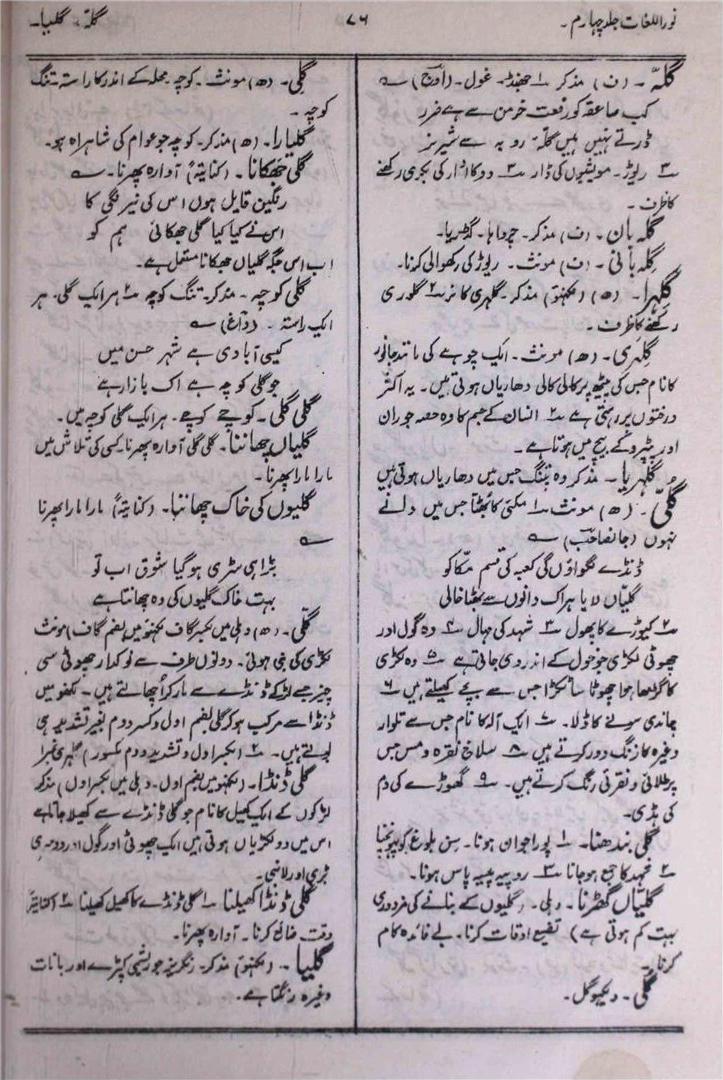 نور اللغات جلد چہارم۔
۷۶
گلہ۔ گلیا۔
گلّہ۔ (ف) مذکر ۱؎ جھنڈ۔ غول۔ (اوج) ؎
کب صاعقہ کو رفعت خرمن سے ہے ضرر
ڈرتے نہیں ہیں گلّہ روبہ سے شیر نر
۲؎ ریوڑ۔ مویشیوں کی ڈار ۳؎ دوکاندار کی بکری رکھنے
کا ظرف۔
گلہ بان۔ (ف) مذکر۔ چرواہا۔ گڈریا۔
گلہ بانی۔ (ف) مونث۔ ریوڑ کی رکھوالی کرنا۔
گلہرا۔ (ھ) (لکھنؤ) مذکر۔ گلہری کا نر ۲؎ گلوری
رکھنے کا ظرف۔
گلہری۔ (ھ) مونث۔ ایک چوہے کی مانند جانور
کا نام جس کی پیٹھ پر کالی کالی دھاریاں ہوتی ہیں۔ یہ اکثر
درختوں پر رہتی ہے ۲؎ انسان کے جسم کا وہ حصہ جو ران
اور پیڑو کے بیچ میں ہوتا ہے۔
گلہریا۔ مذکر وہ پتنگ جس میں دھاریاں ہوتی ہیں
گلّی۔ (ھ) مونث ۱؎ مکئی کا بھٹا جس میں دانے
نہوں (جانصاحب) ؎
ڈنڈے لگواؤں گی کعبہ کی قسم مکا کو
گلیاں لایا ہر اک دانوں سے بھٹا خالی
۲؎ کیوڑے کا پھول ۳؎ شہد کی مہال ۴؎ وہ گول اور
چھوٹی لکڑی جو خول کے اندر دی جاتی ہے ۵؎ وہ لکڑی
کا گڑھا ہوا چھوٹا سا ٹکڑا جس سے بچے کھیلتے ہیں ۶؎
چاندی سونے کا ڈلا۔ ۷؎ ایک آلہ کا نام جس سے تلوار
وغیرہ کا زنگ دور کرتے ہیں ۸؎ سلاخ نقرہ و مس جس
پر طلائی و نقرئی رنگ کرتے ہیں۔ ۹؎ گھوڑے کی دم
کی ہڈی۔
گلی بندھنا۔ ۱؎ پورا جوان ہونا۔ سن بلوغ کو پہونچنا
۲؎ جمع ہو جانا ۳؎ روپیہ پیسہ پاس ہونا۔
گلیاں گھڑنا۔ دہلی۔ (گلیوں کے بنانے کی مزدوری
بہت کم ہوتی ہے) تضیع اوقات کرنا۔ بے فائدہ کام
کرنا۔
گلی۔ دیکھو گل۔
گلی۔ (ھ) مونث۔ کوچہ محلہ کے اندر کا راستہ تنگ
کوچہ۔
گلیارا۔ (ھ) مذکر۔ کوچہ جو عوام کی شاہراہ ہو۔
گلی جھکانا۔ (کنایتہً) آوارہ پھرنا۔ ؎
رنگین قایل ہوں اس کی نیرنگی کا
اس نے کیا کیا گلی جھکائی ہم کو
اب اس جگہ گلیاں جھکانا مستعمل ہے۔
گلی کوچہ۔ مذکر۔ تنگ کوچہ ۲؎ ہر ایک گلی۔ ہر
ایک راستہ۔ (داغ) ؎
کیسی آبادی ہے شہر حسن میں
جو گلی کوچہ ہے اک بازار ہے
گلی گلی۔ کوچے کوچے۔ ہر ایک گلی کوچہ میں۔
گلیاں چھاننا۔ گلی گلی آوارہ پھرنا۔ کسی کی تلاش میں
مارا مارا پھرنا۔
گلیوں کی خاک چھاننا۔ (کنایتہً) مارا مارا پھرنا
؎
بڑا ہی سڑی ہو گیا شوق اب تو
بہت خاک گلیوں کی وہ چھانتا ہے
گلّی۔ (ھ۔ دہلی میں بکسر گاف لکھنؤ میں بضم گاف) مونث
لکڑی کی بنی ہوئی۔ دونوں طرف سے نوکدار چھوٹی سی
چیز جسے لڑکے ڈنڈے سے مار کر اچھالتے ہیں۔ لکھنؤ میں
ڈنڈا سے مرکب ہو کر گلی بضم اول و کسر دوم بغیر تشدید ہی
بولتے ہیں۔ ۲؎ (بکسر اول و تشدید دوم مکسور) گلہری
گلی ڈنڈا۔ (لکھنؤ میں بضم اول۔ دہلی میں بکسر اول) مذکر
لڑکوں کے ایک کھیل کا نام جو گلی ڈنڈے سے کھیلا جاتا ہے
اس میں دو لکڑیاں ہوتی ہیں ایک چھوٹی اور گول اور دوسری
بڑی اور لانبی۔
گلی ڈنڈا کھیلنا ۱؎ گلی ڈنڈے کا کھیل کھیلنا ۲؎ (کنایتہً)
وقت ضائع کرنا۔ آوارہ پھرنا۔
گلیا۔ (لکھنؤ) مذکر۔ رنگریز جو ریشمی کپڑے اور بانات
وغیرہ رنگتا ہے۔